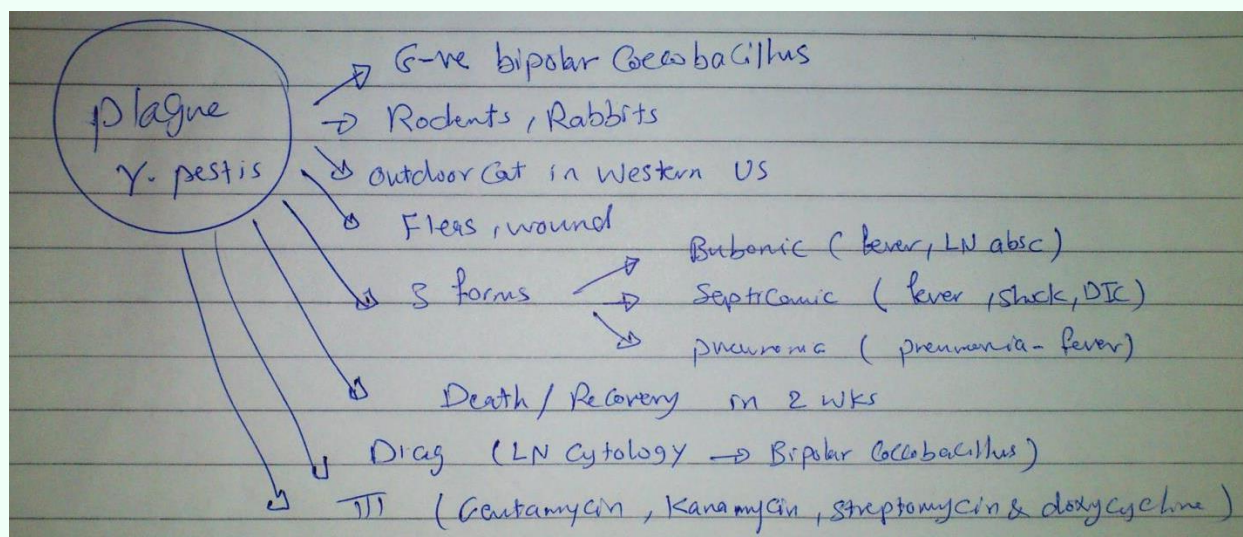 G-ve bipolar Coccobacillus
plague
→ Rodents, Rabbits
Y. pestis
outdoor Cat in Western US
Fleas, wound
3 forms
Bubonic ( fever, LN absc )
Septicamic ( fever, shock, DIC )
pneumonia ( pneumonia - fever )
Death / Recovery in 2 wks
Diag ( LN Cytology → Bipolar Coccobacillus )
TTT ( Gentamycin, Kanamycin, streptomycin & doxycycline )